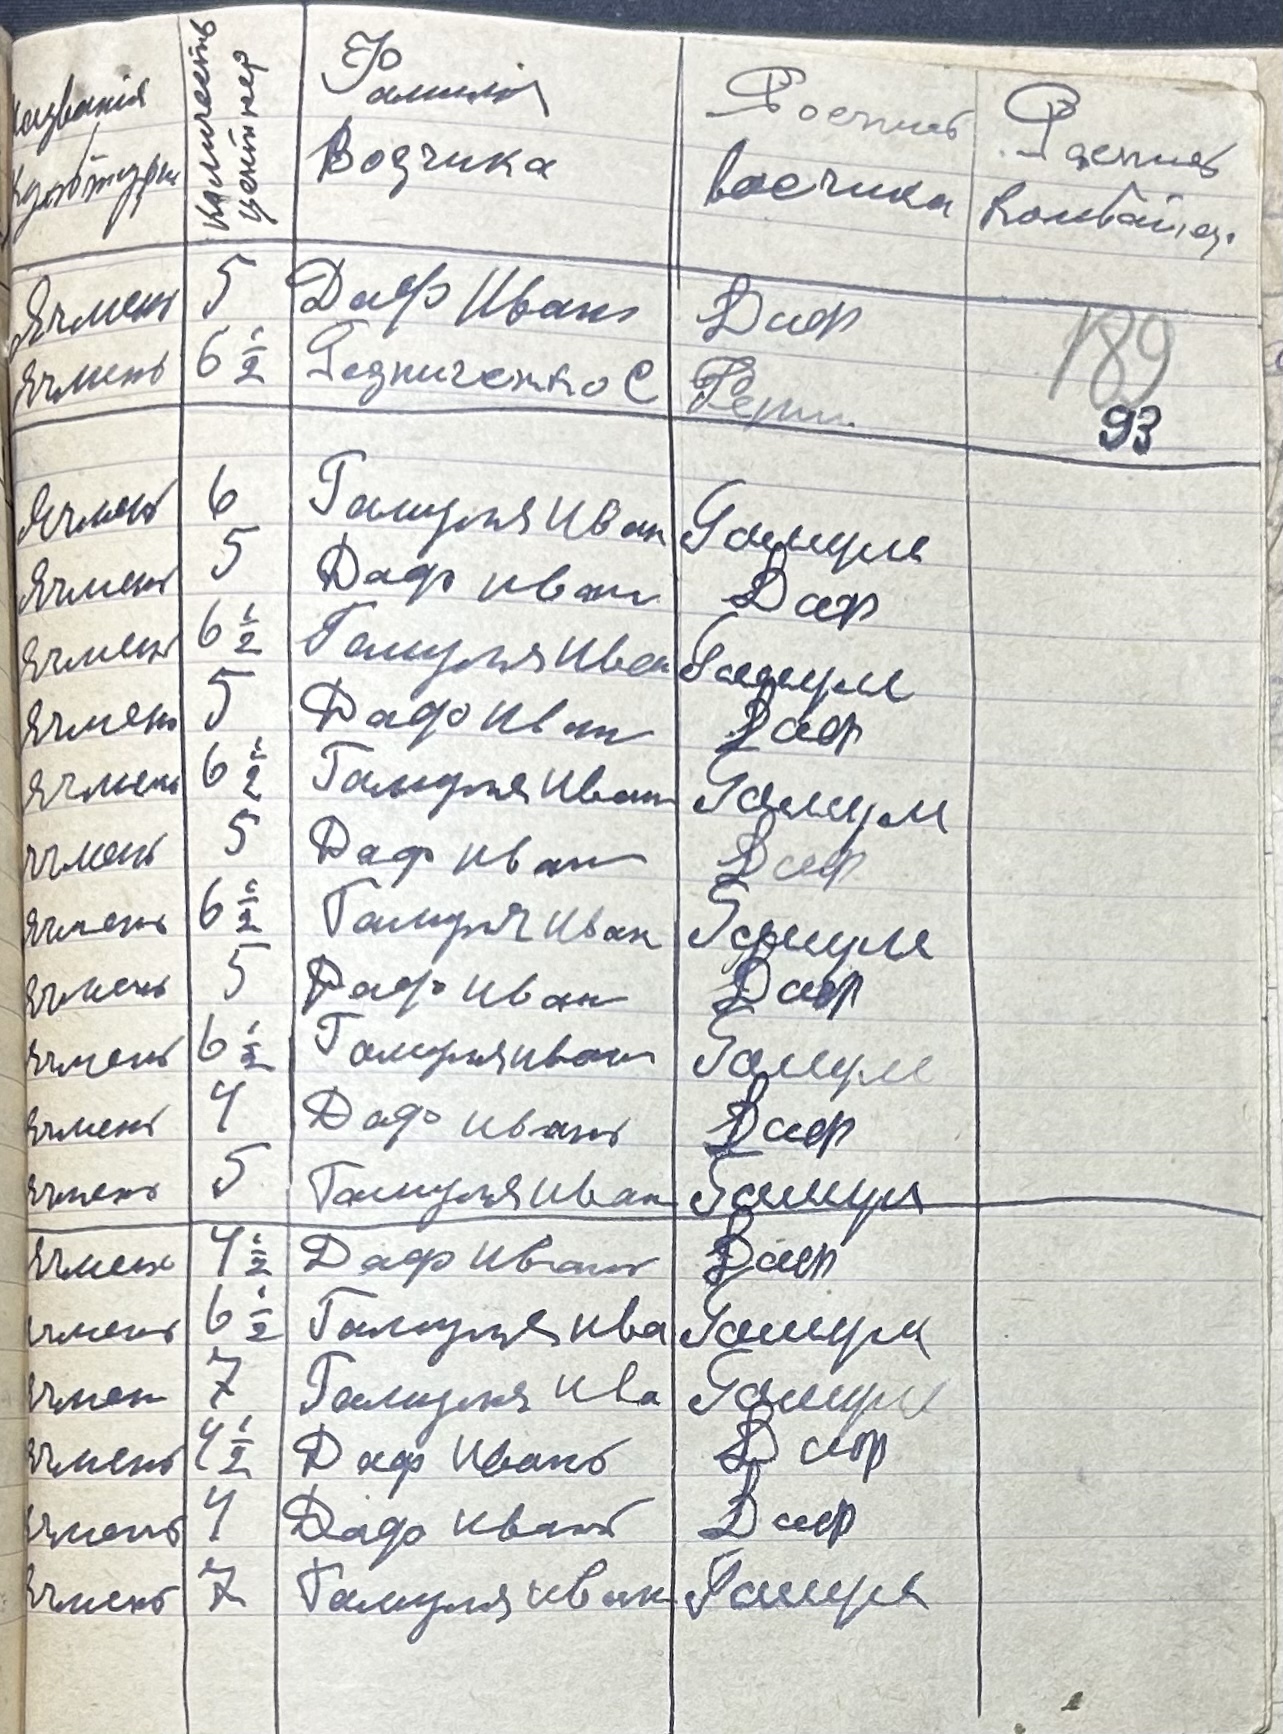 Названия Культуры Количесть центнер Фамилия Возчика Роспись восчика Роспись Комбайнер.
Ячмень 5 Даф Иван Даф
189
Ячмень 6 1/2 Резниченко С
93
Ячмень 6 Гамуля Иван Гамуля
Ячмень 5 Даф Иван Даф
Ячмень 6 1/2 Гамуля Иван Гамуля
Ячмень 5 Даф Иван Даф
Ячмень 6 1/2 Гамуля Иван Гамуля
Ячмень 5 Даф Иван Даф
Ячмень 6 1/2 Гамуля Иван Гамуля
Ячмень 5 Даф Иван Даф
Ячмень 6 1/2 Гамуля Иван Гамуля
Ячмень 4 Даф Иван Даф
Ячмень 5 Гамуля Иван Гамуля
Ячмень 4 1/2 Даф Иван Даф
Ячмень 6 1/2 Гамуля Ива Гамуля
Ячмен 7 Гамуля Ива Гамуля
Ячмень 4 1/2 Даф Иван Даф
Ячмень 4 Даф Иван Даф
Ячмень 7 Гамуля Иван Гамуля